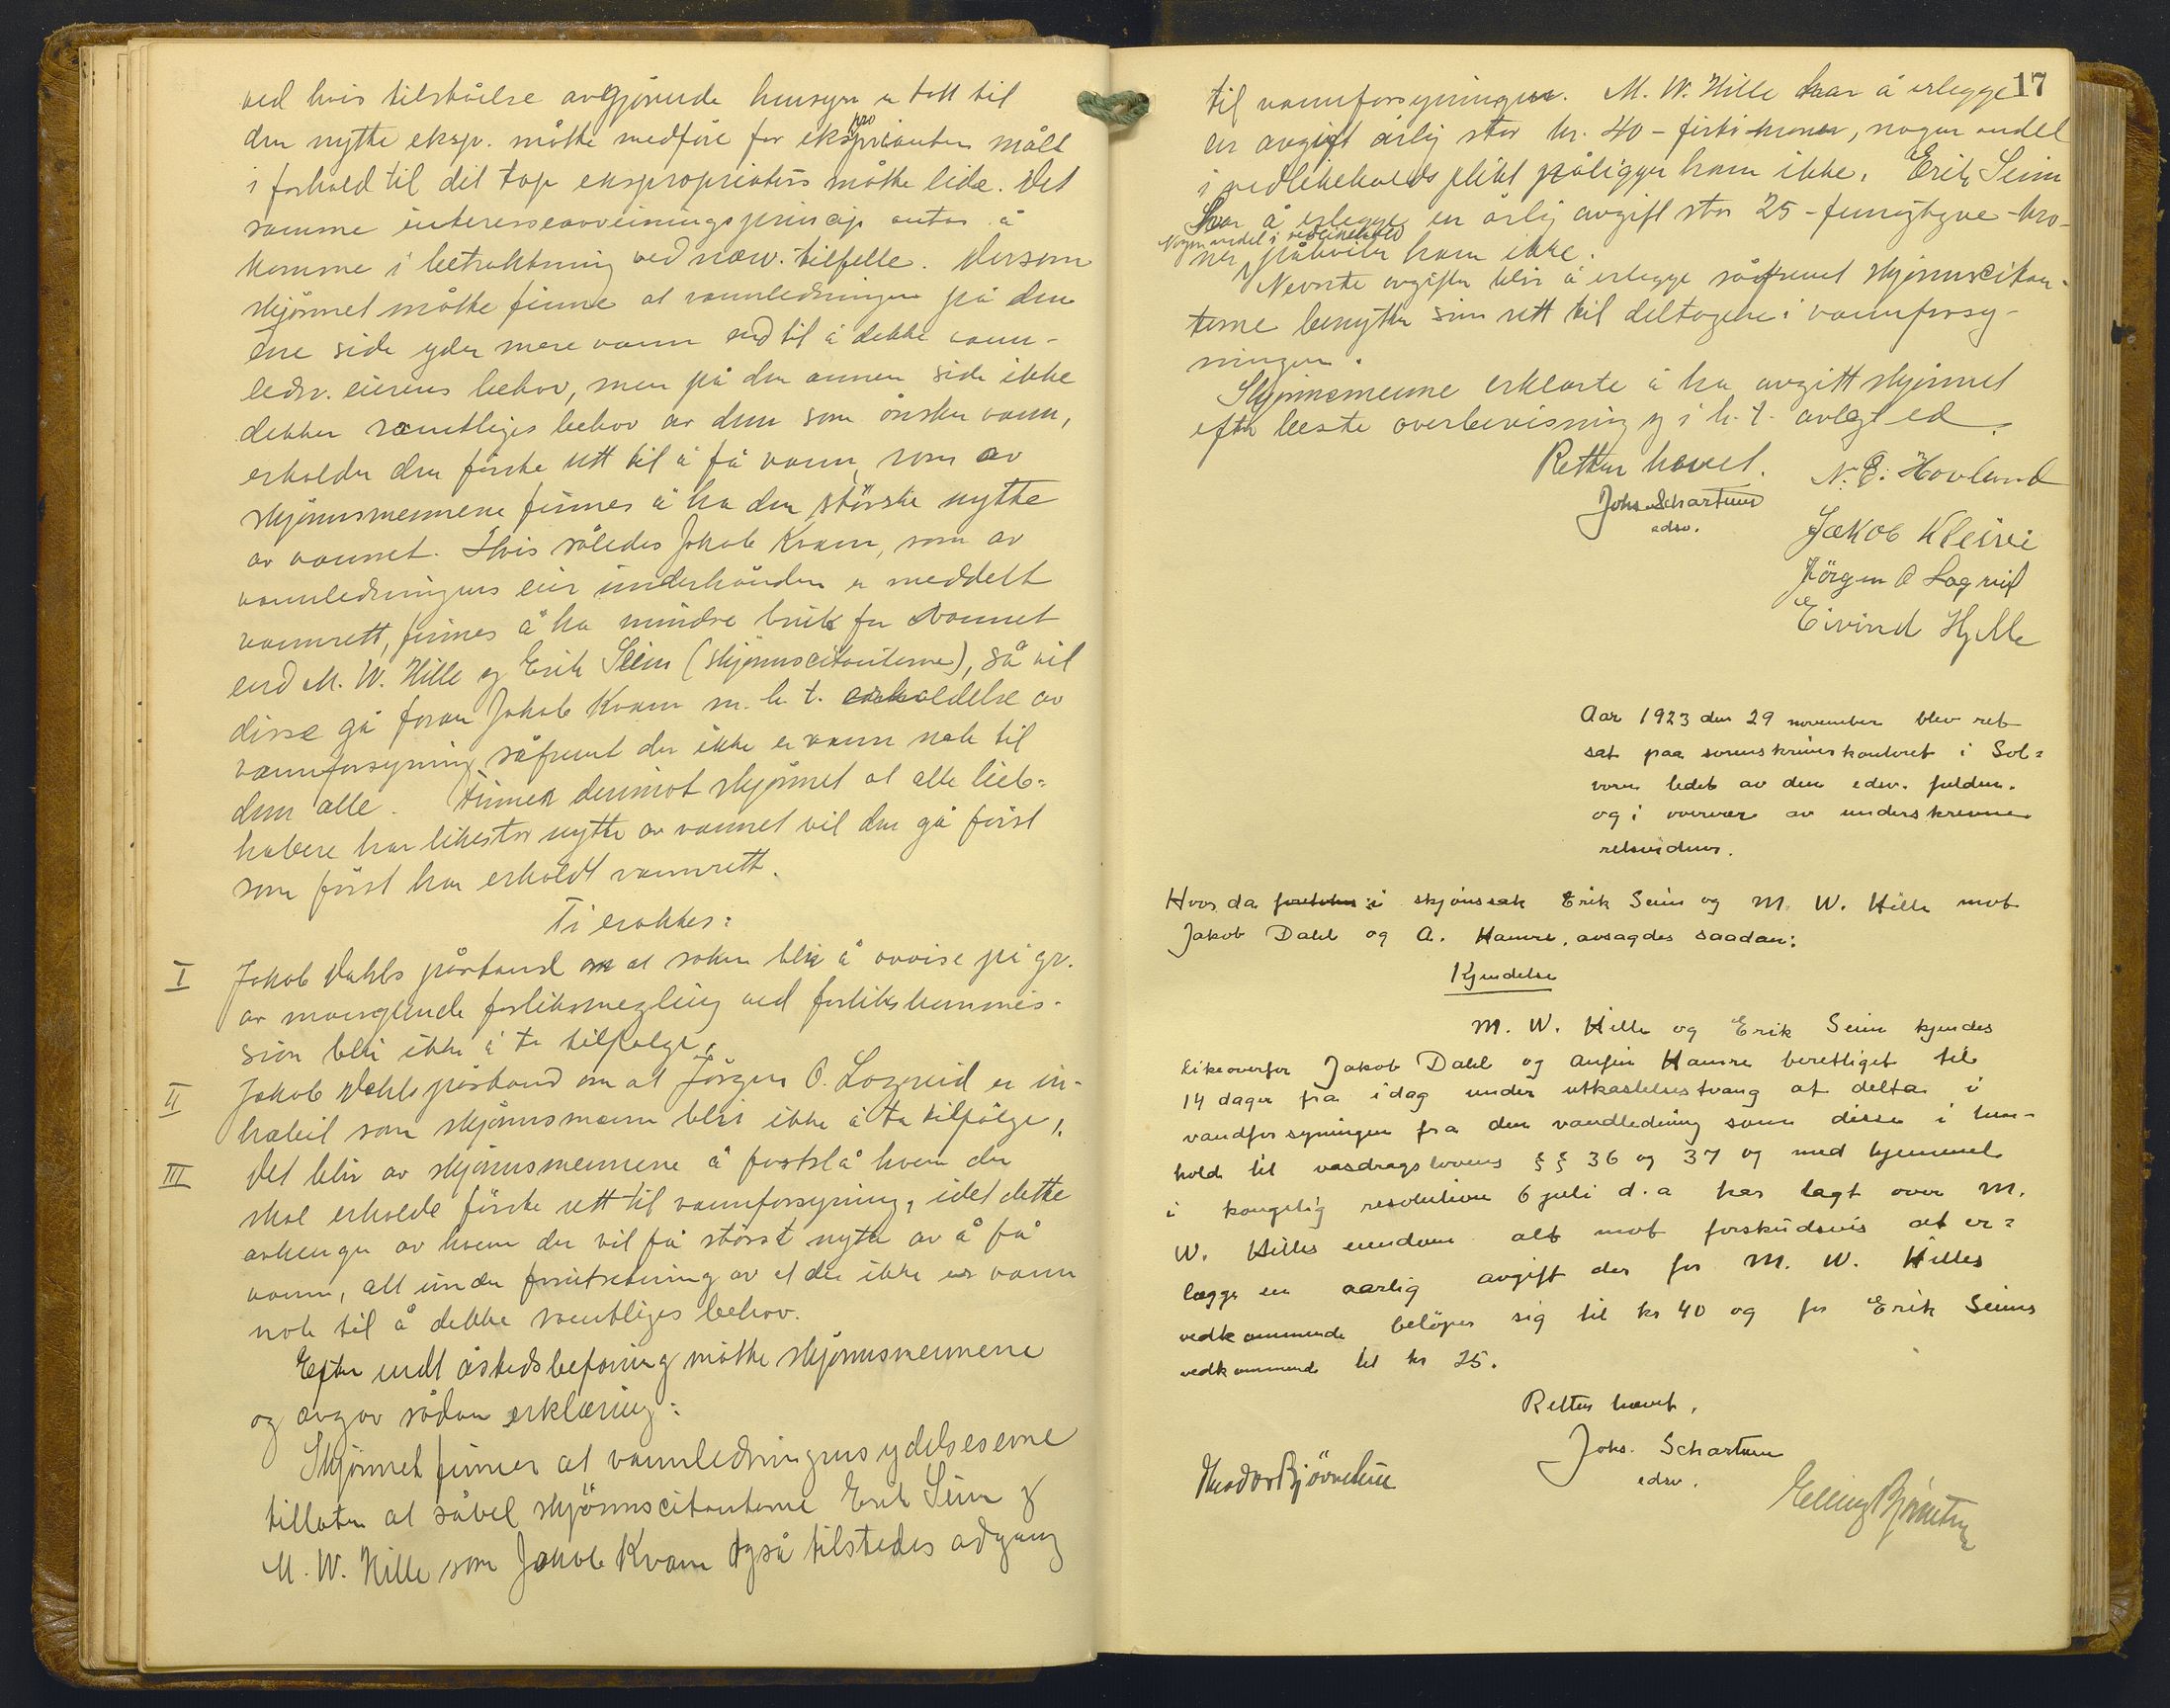 ved hvis tilståelse avgjörende hensyn er tatt til
den nytte eksp. måtte medföre for ekspropriantens målt
i forhold til det tap ekspropriatus måtte lide. Det
samme interesseavveiningsprincip antas å
komme i betraktning ved nærv. tilfelle. Dersom
skjönnet måtte finne at vannledningen på den
ene side yder mere vann end til å dekke vann-
ledn. eierens behov, men på den annen side ikke
dekker samtliges behov av dem som önsker vann,
erholder den förste rett til å få vann, som av
skjönnsmennene finnes å ha den störste nytte
av vannet. Hvis således Jakob Kvam, som av
vannledningens eier underhånden er meddelt
vannrett, finnes å ha mindre bruk for vannet
end M. W. Hille og Erik Seim (skjönnscitanterne), så vil
disse gå foran Jakob Kvam m. h. t. erholdelse av
vannforsyning såfremt der ikke er vann nok til
dem alle. Finner derimot skjönnet at alle lieb-
habere har likestor nytte av vannet vil den gå först
som först har erholdt vannrett.
Ti eraktes:
I Jakob Dahls påstand om at saken blir å avvise på gr.
av manglende forliksmegling ved forlikskommis-
sion blir ikke å ta tilfölge.
II Jakob Dahls påstand om at Jörgen O. Lagreid er in-
habil som skjönnsmann blir ikke å ta tilfölge,
III Det blir av skjönnsmennene å fastslå hvem der
skal erholde förste rett til vannforsyning, idet dette
avhenger av hvem der vil få störst nytte av å få
vann, alt under forutsetning av at der ikke er vann
nok til å dekke samtliges behov.
Efter endt åstedsbefaring måtte skjönnsmennene
og avgav sådan erklæring:
Skjönnet finner at vannledningens ydelsesevne
tillater at såvel skjönnscitanterne Erik Seim og
M. W. Hille som Jakob Kvam også tilstedes adgang
17
til vannforsyningen. M. W. Hille har å erlegge
en avgift årlig stor kr. 40 - firti kroner, nogen andel
i vedlikeholdsplikt påligger ham ikke. Erik Seim
har å erlegge en årlig avgift stor 25 - femogtyve - kro-
Nogen andel i vedlikehold
ner påhviler ham ikke.
Nevnte avgifter blir å erlegge såfremt skjönnscitan-
terne benytter sin rett til deltagelse i vannforsy-
ningen.
Skjönnsmennene erklærte å ha avgitt skjönnet
efter beste overbevisning og i h. t. avlagt ed.
Retten hævet. N. E. Hovland
Johs. Schartum
edsv.
Jakob Kleivi
Jörgen O Lagreid
Eivind Hylle
Aar 1923 den 29 november blev ret
sat paa sorenskriverkontoret i Sol-
vorn ledet av den edsv. fuldm.
og i overvær av underskrevne
retsvidner.
Hvor da foretokes i skjönssak Erik Seim og M. W. Hille mot
Jakob Dahl og A. Hamre, avsagdes saadan:
Kjendelse
M. W. Hille og Erik Seim kjendes
likeoverfor Jakob Dahl og Anfin Hamre berettiget til
14 dager fra idag under utkastelsestvang at delta i
vandforsyningen fra den vandledning som disse i hen-
hold til vasdragslovens §§ 36 og 37 og med hjemmel
i kongelig resolution 6 juli d. a har lagt over M.
W. Hilles eiendom alt mot forskudsvis at er-
lægge en aarlig avgift der for M. W. Hilles
vedkommende belöper sig til kr 40 og for Erik Seims
vedkommende til kr 25.
Retten hævet.
Johs. Schartum
edsv.